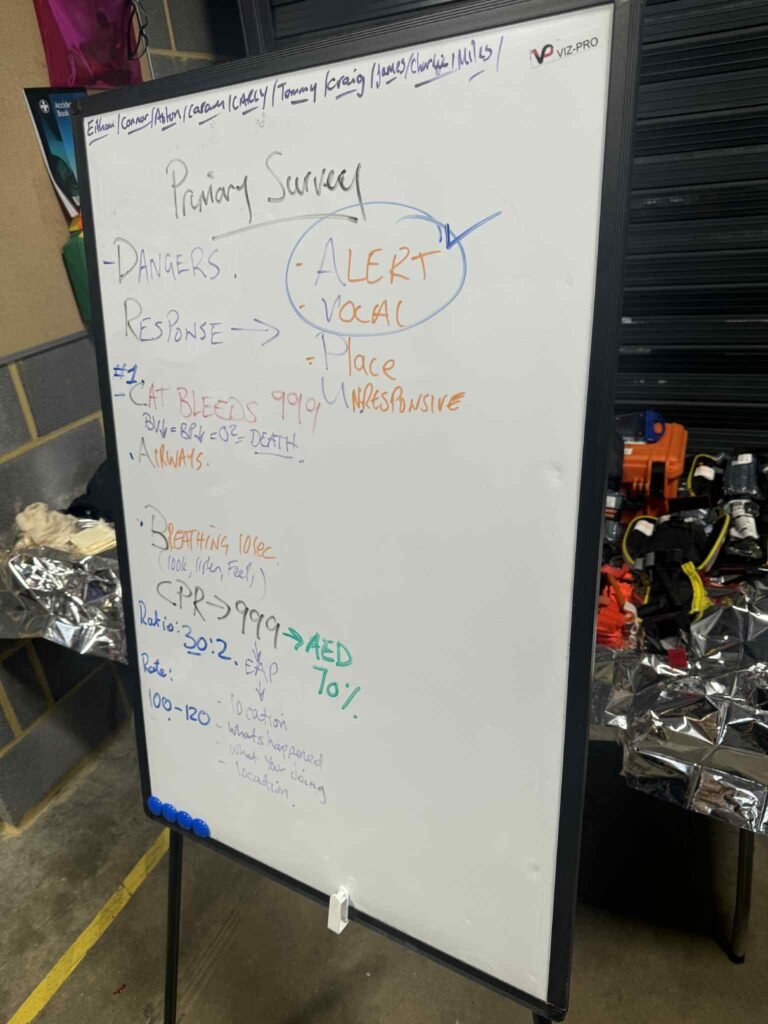 VP VIZ-PRO
Connor / Aston / Callum / CARLY / Tommy / Craig / James / Charlie / Miles /
Accident
Book
Primary Survey
- DANGERS.
- ALERT
RESPONSE →
- VOCAL
- Place
UNRESPONSIVE
#1
- CAT BLEEDS 999
BV↓ = BP↓ = O2 = DEATH
. AIRWAYS.
. BREATHING 10sec.
(look, listen, Feel,)
CPR → 999 → AED
70%
Ratio: 30:2.
EAP
Rate:
100-120
- location
- whats happened
- what your doing
- location.